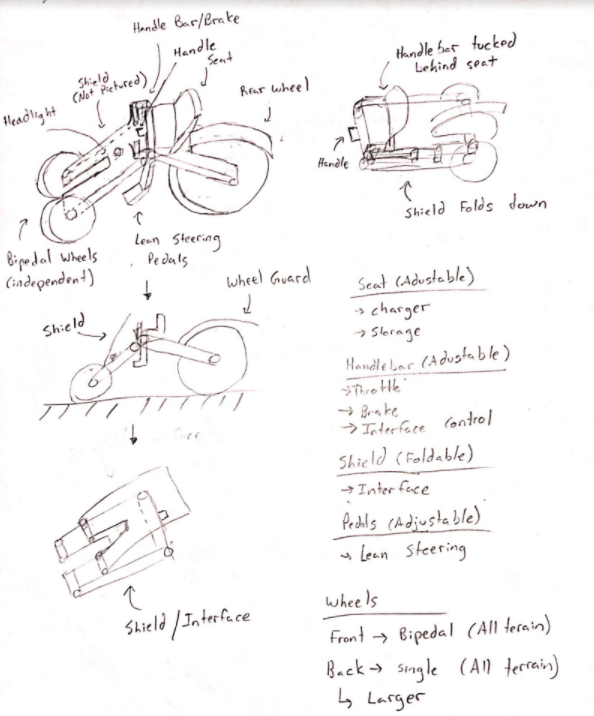 Handle Bar/Brake
Handle
Seat
Shield
(Not Pictured)
Headlight
Rear Wheel
Bipedal Wheels
(independent)
Lean Steering
Pedals
Handlebar tucked
behind seat
Handle
Shield Folds down
Wheel Guard
Shield
Shield/Interface
Seat (Adustable)
→ charger
→ Storage
Handlebar (Adustable)
→ Throttle
→ Brake
→ Interface control
Shield (Foldable)
→ Interface
Pedals (Adjustable)
→ Lean Steering
Wheels
Front → Bipedal (All terain)
Back → single (All terrain)
↳ Larger